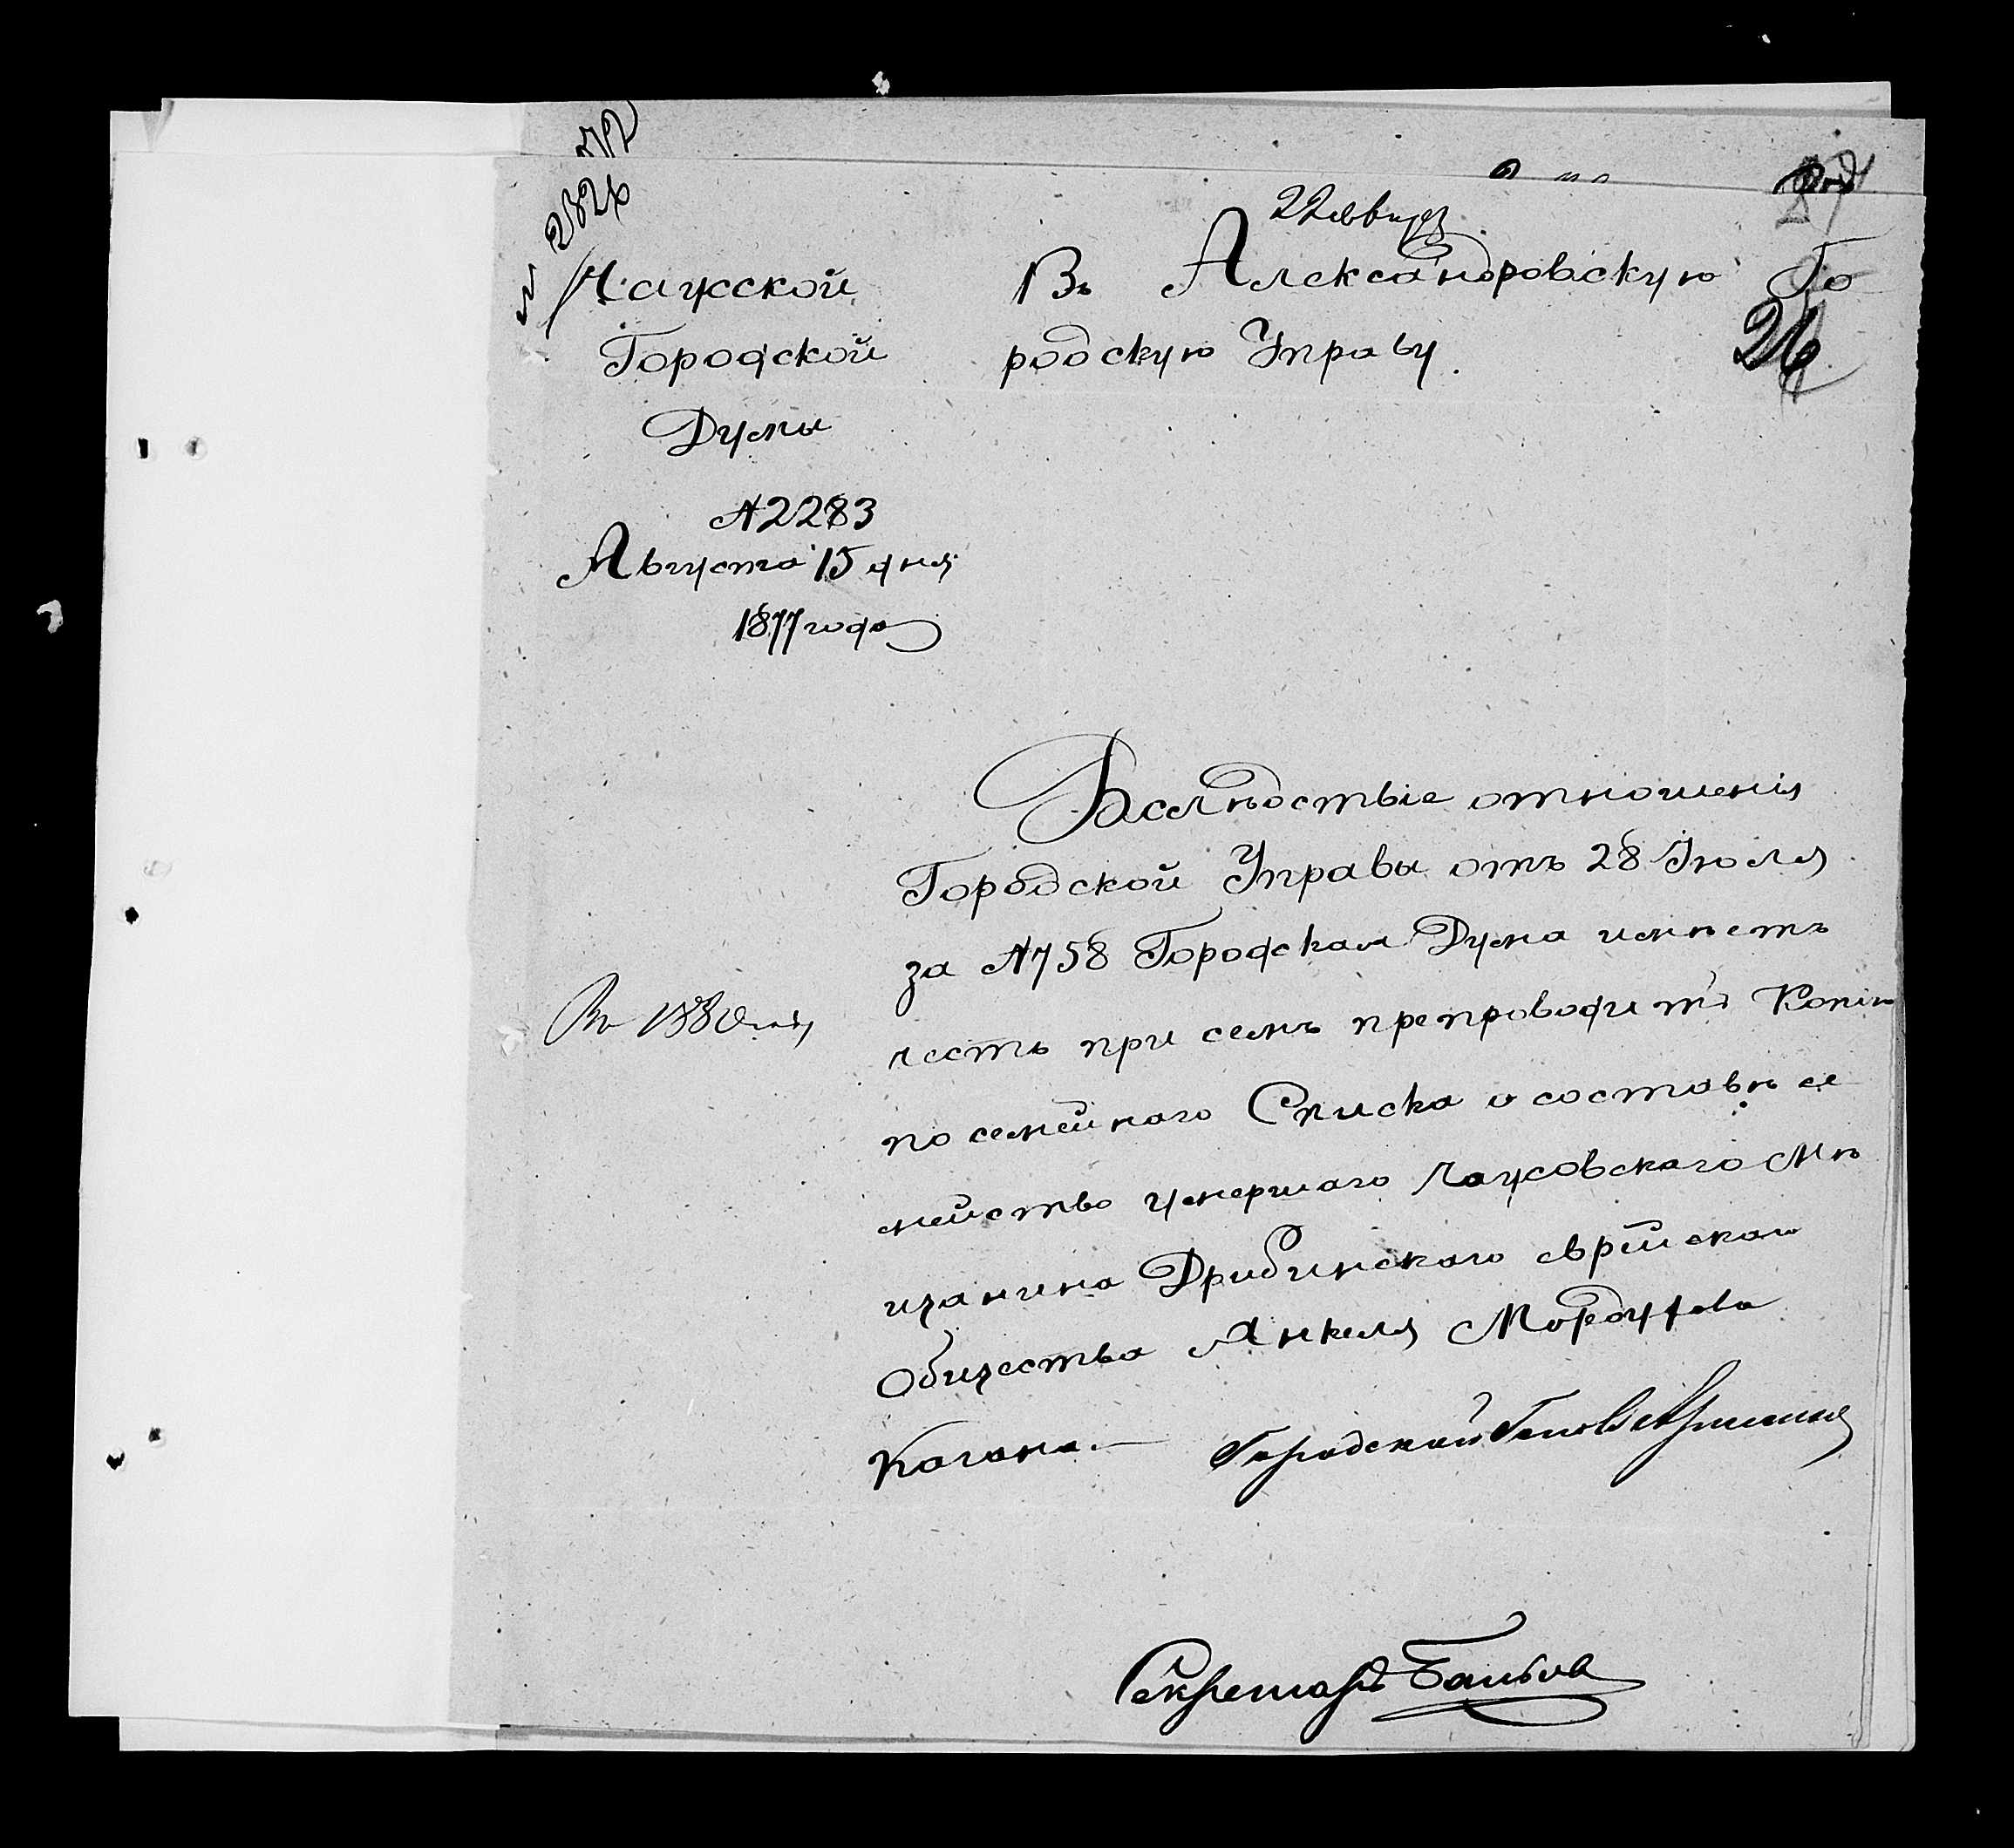 22 августа
Чаусской
Городской
Думы
№ 2283
Августа 15 дня
1877 года
Въ Александровскую Го
родскую Управу.
26
Вслѣдствіе отношенія
Городской Управы отъ 28 Июля
за № 758 Городская Дума имѣетъ
честь при семъ препроводить Копію
посемейнаго Списка о составѣ се
мейство умершаго Чаусовскаго мѣ
щанина Дрибинскаго еврейскаго
Общества Янкеля Мордухова
Кагана.—
Городской Голова
Секретарь